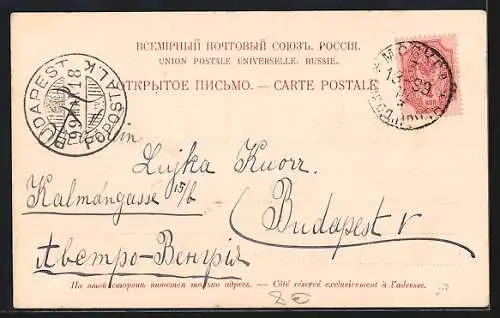 ВСЕМІРНЫЙ ПОЧТОВЫЙ СОЮЗЪ. РОССІЯ.
UNION POSTALE UNIVERSELLE. RUSSIE.
ОТКРЫТОЕ ПИСЬМО. — CARTE POSTALE
BUDAPEST
FŐPOSTA
99
18
МОСКВА
Lujka Kuorr.
Kalmángasse 15/b
Budapest V
Австро-Венгрія
На этой сторонѣ пишется только адресъ. — Côté réservé exclusivement à l'adresse.